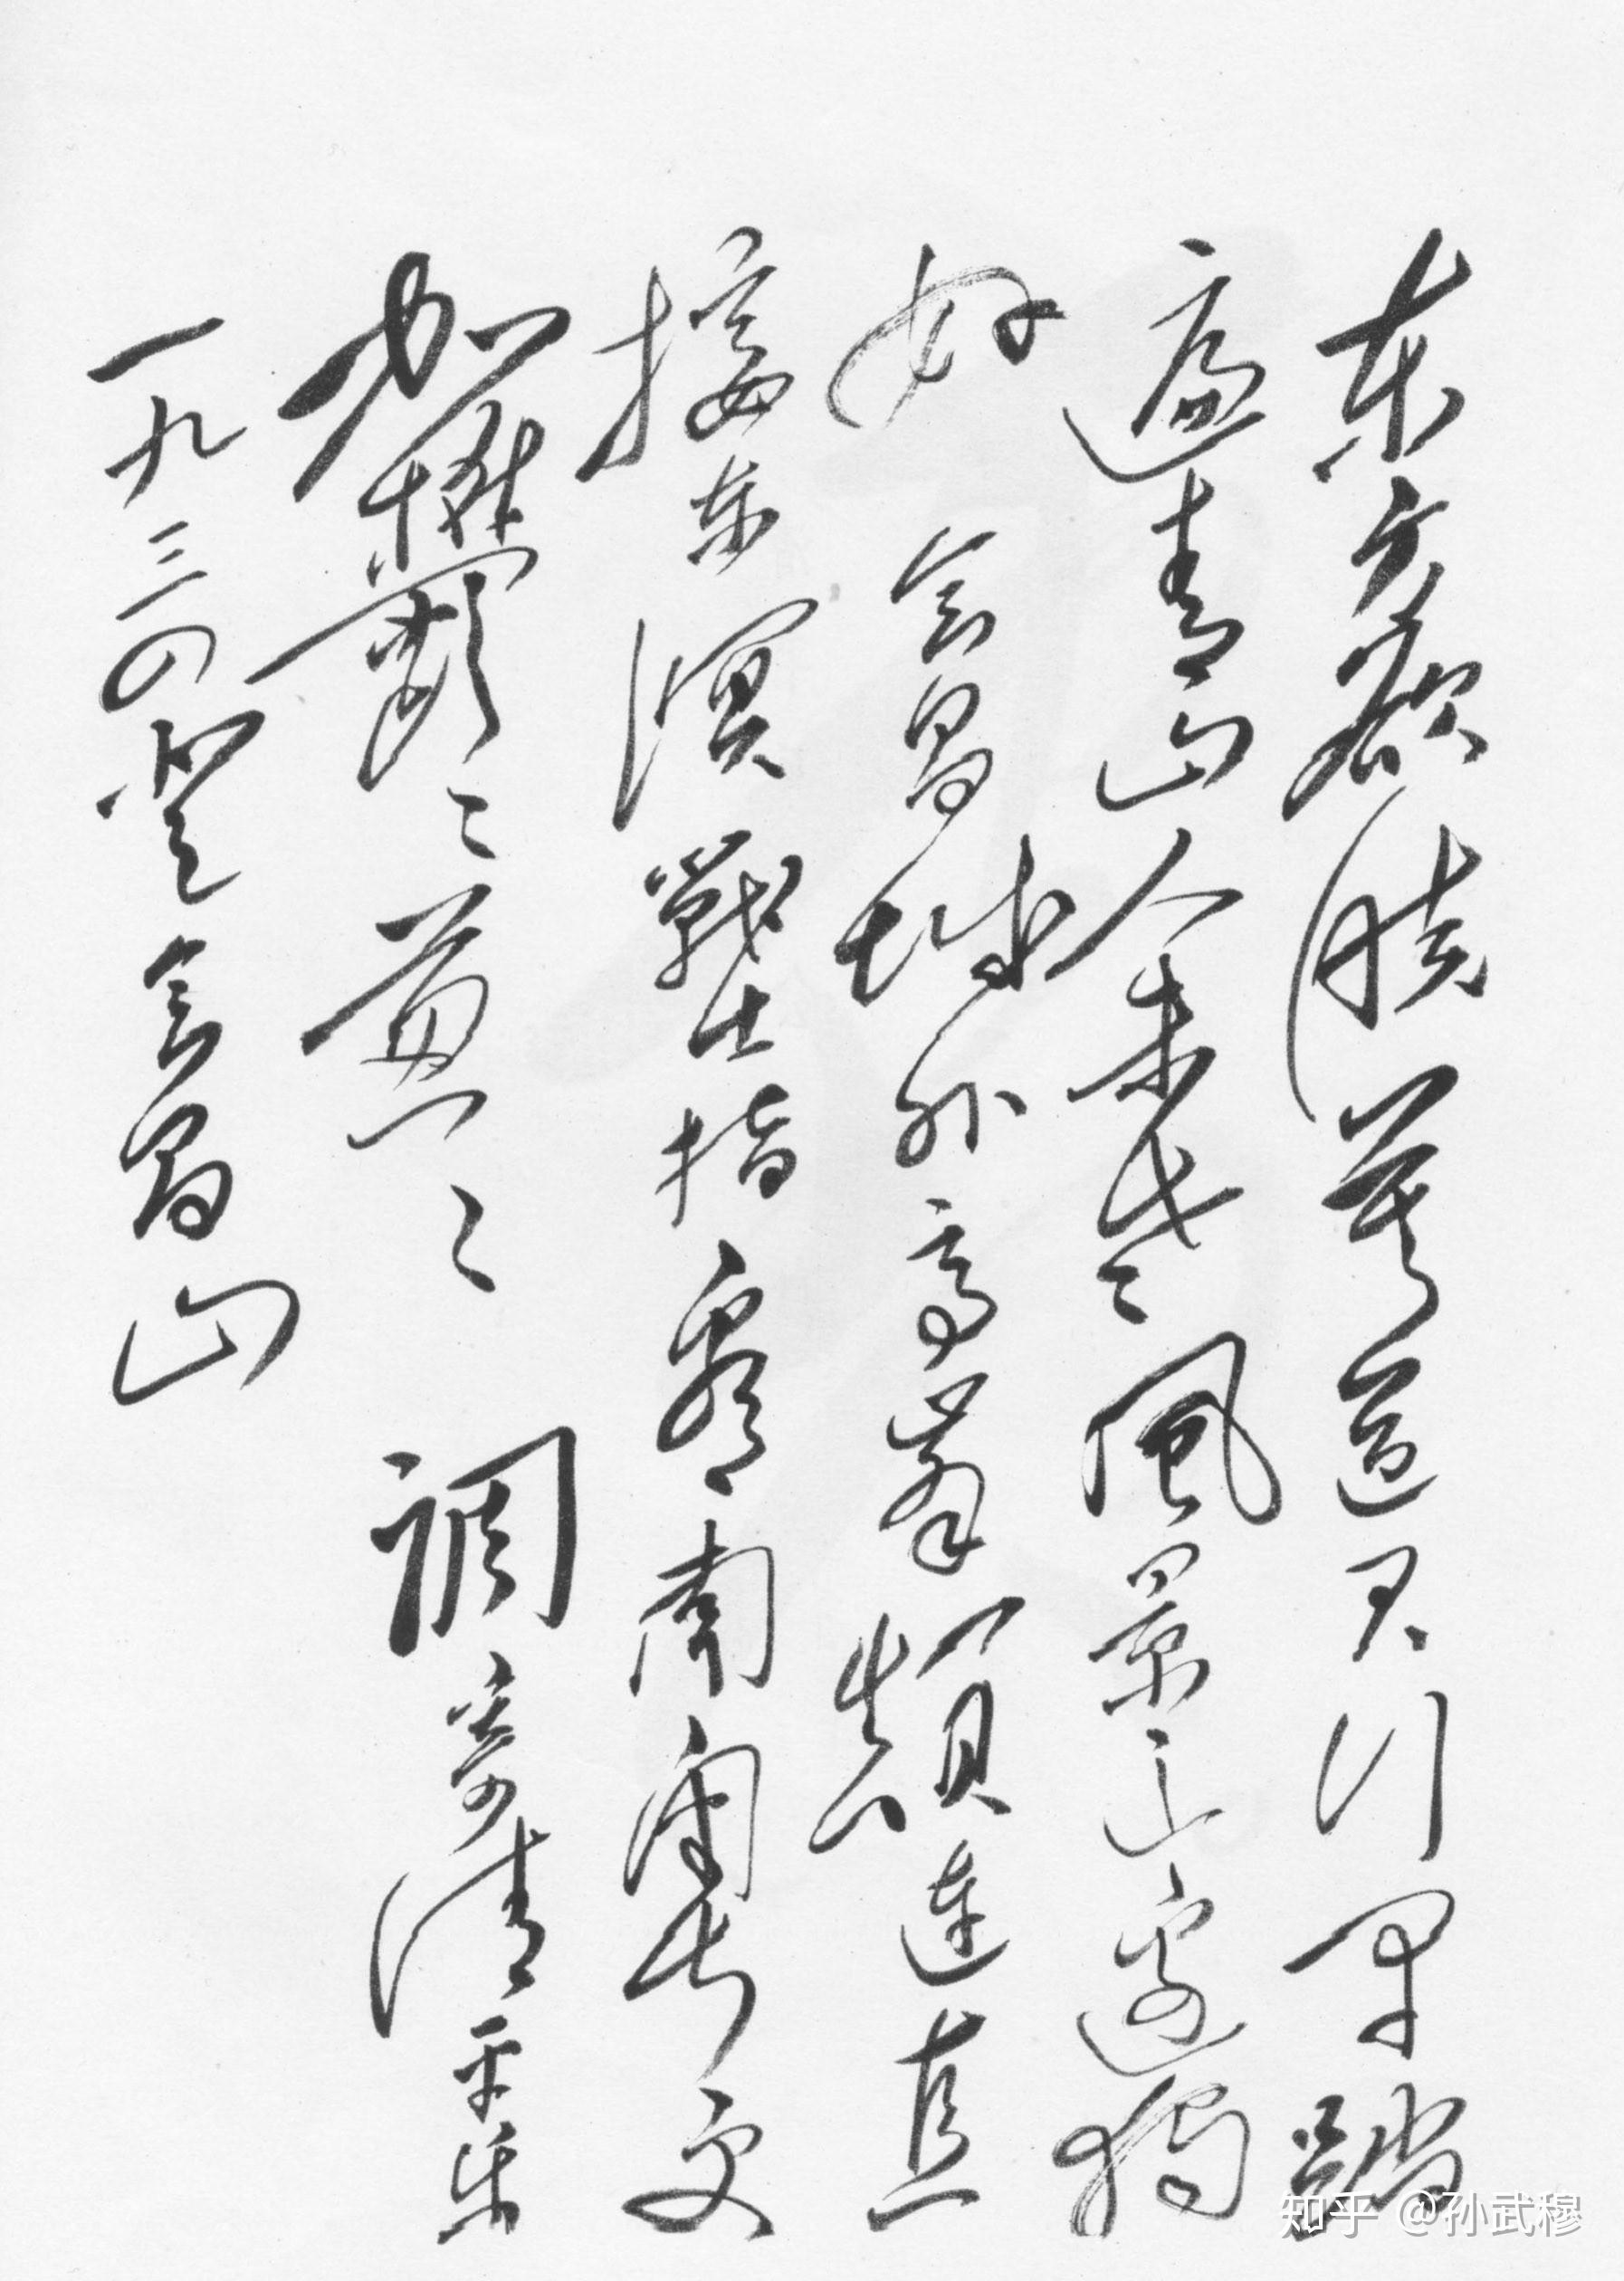 东方欲晓莫道君行早踏
遍青山人未老=風景这邊獨
好 会昌城外高峯顛连直
接东溟戰士指看南粤更
加鬱=葱= 調寄清平乐
一九三四登会昌山
知乎 @孙武穆